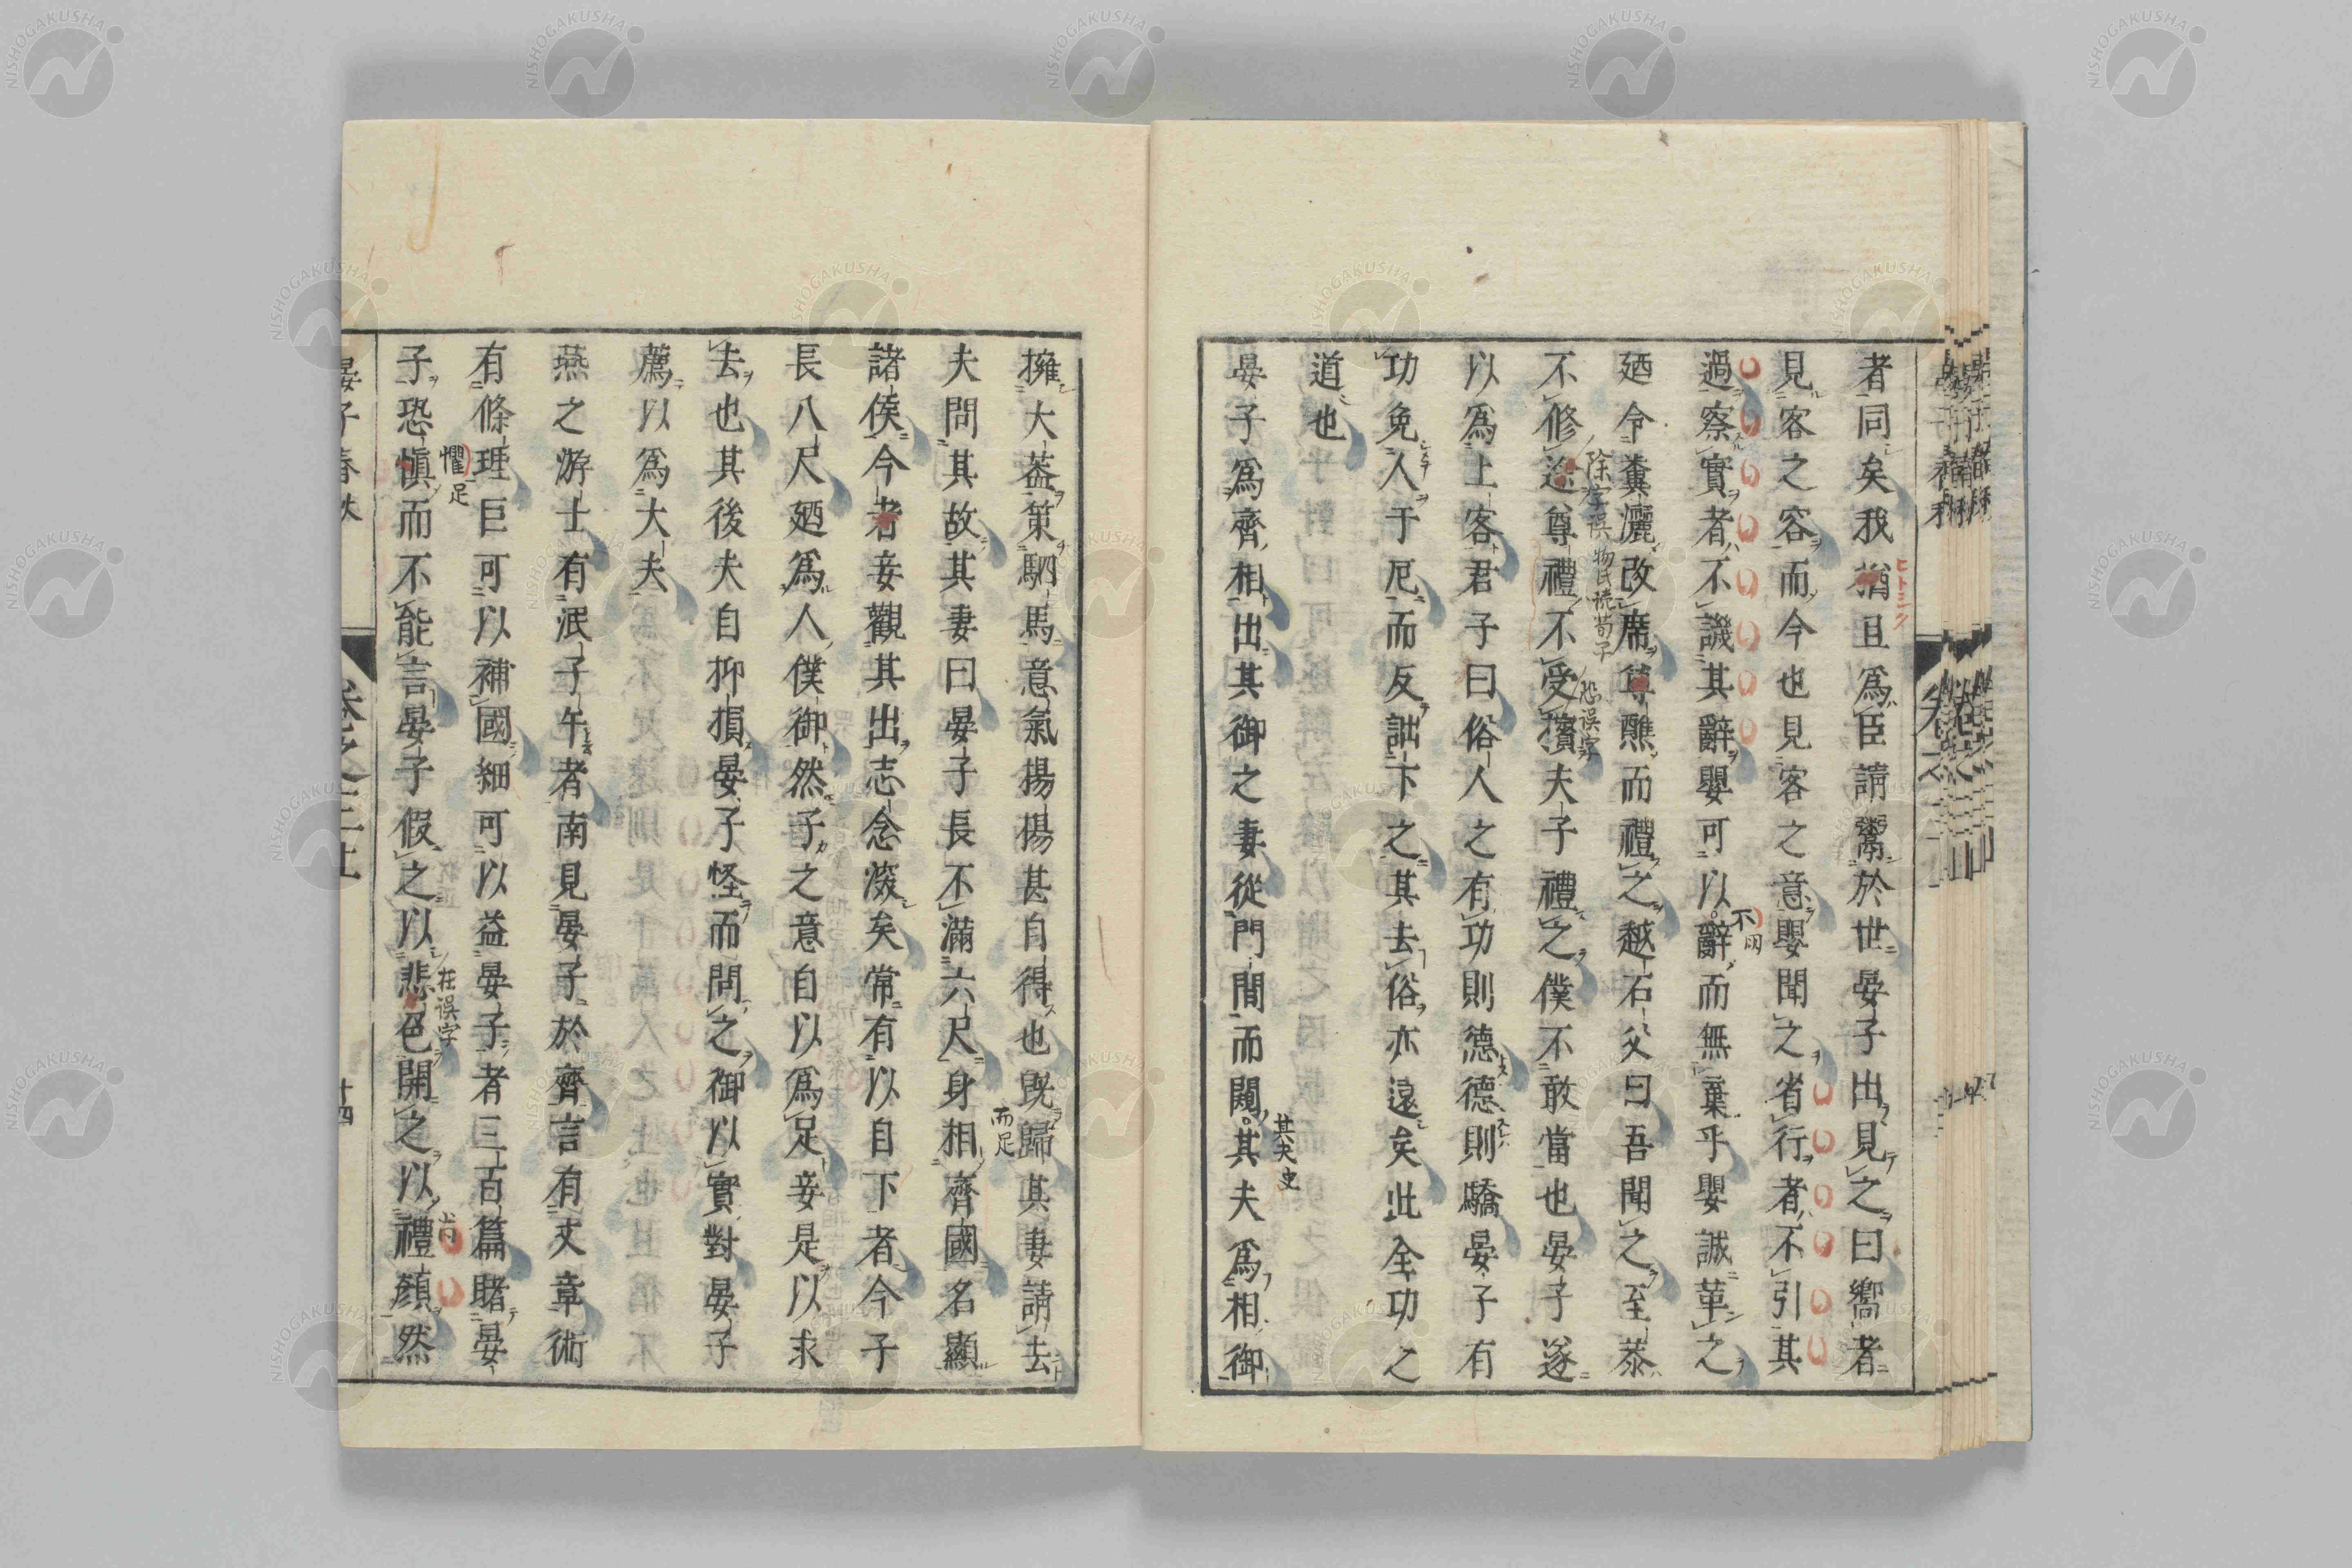 者同矣我猶且爲臣請鬻於世晏子出見之曰嚮者
見客之容而今也見客之意嬰聞之省行者不引其
過察實者不譏其辭嬰可以辭而無棄乎嬰誠革之
不
廼令糞灑改席尊醮而禮之越石父曰吾聞之至恭
除字誤物氏讀荀子
恐誤字
不修途尊禮不受擯夫子禮之僕不敢當也晏子遂
以爲上客君子曰俗人之有功則德德則驕晏子有
功免人于厄而反詘下之其去俗亦遠矣此全功之
道也
晏子爲齊相出其御之妻從門間而闚其夫爲相御
其夫史
擁大蓋策駟馬意氣揚揚甚自得也既歸其妻請去
而足
夫問其故其妻曰晏子長不滿六尺身相齊國名顯
諸侯今者妾觀其出志念深矣常有以自下者今子
長八尺廼爲人僕御然子之意自以爲足妾是以求
去也其後夫自抑損晏子怪而問之御以實對晏子
薦以爲大夫
燕之游士有泯子午者南見晏子於齊言有文章術
有條理巨可以補國細可以益晏子者三百篇睹晏
懼足
在誤字
子恐慎而不能言晏子假之以悲色開之以禮顏然
晏子春秋
卷之三上
十四
NISHOGAKUSHA